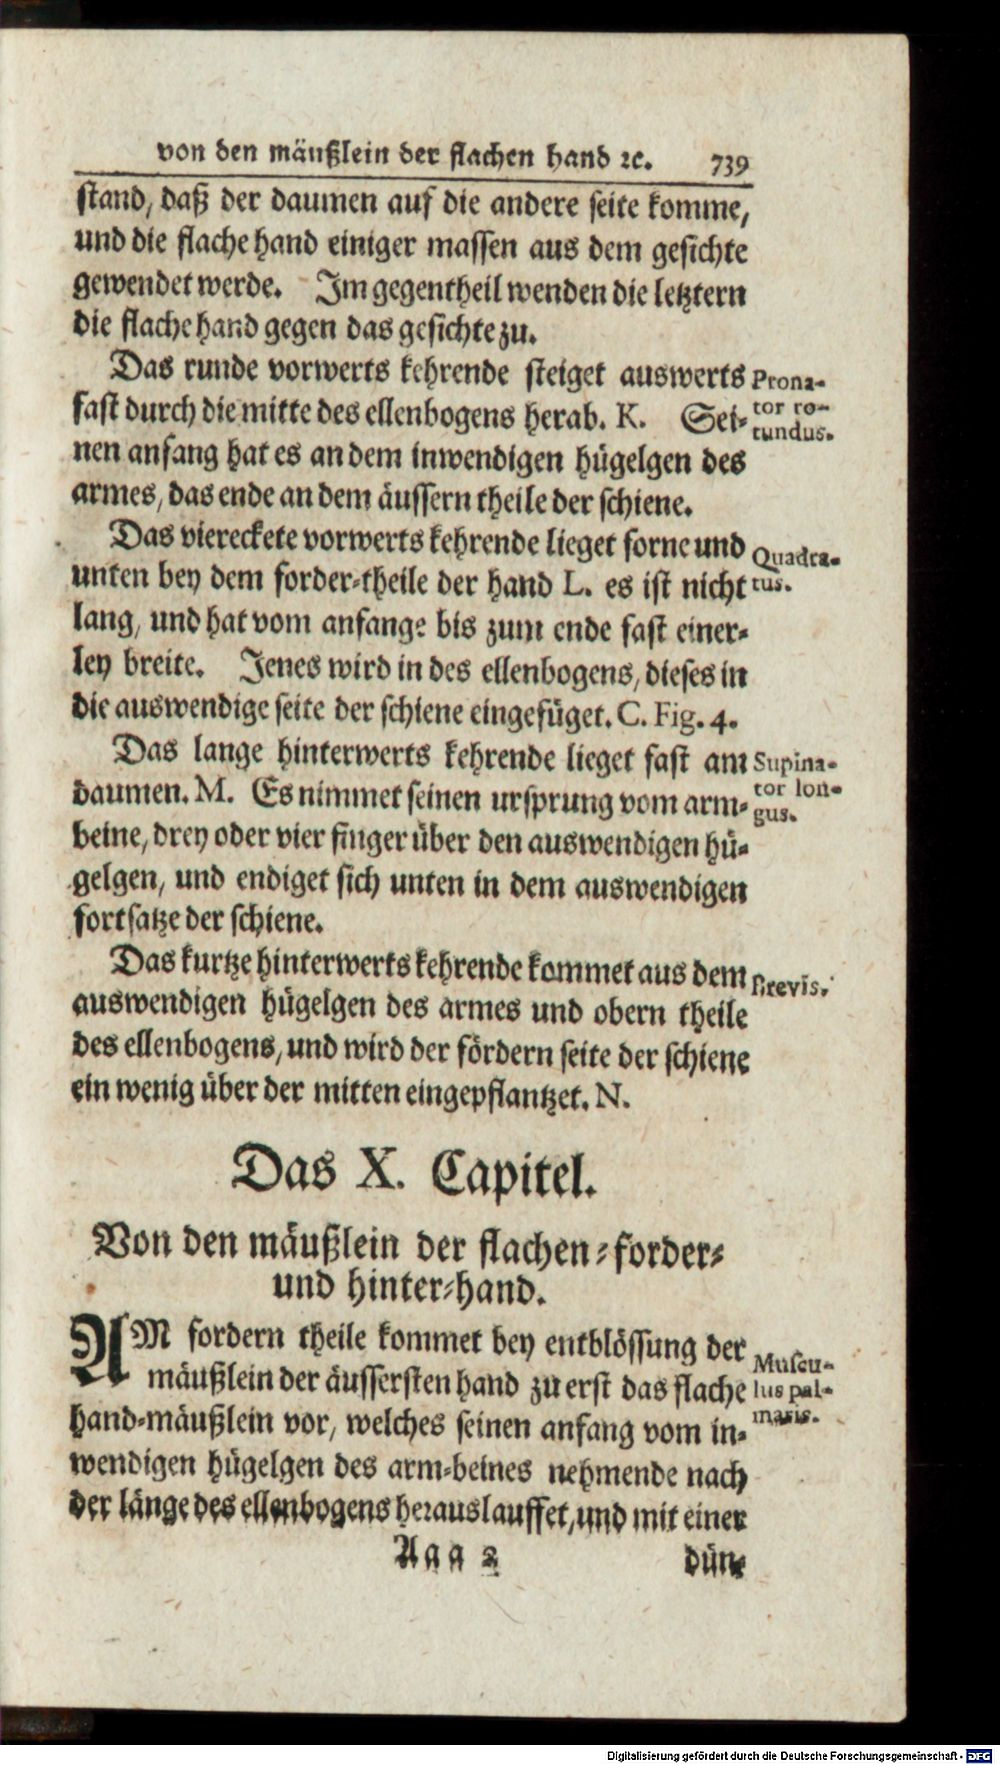 von den mäußlein der flachen hand ꝛc. 739
stand, daß der daumen auf die andere seite komme,
und die flache hand einiger massen aus dem gesichte
gewendet werde. Im gegentheil wenden die letztern
die flache hand gegen das gesichte zu.
Das runde vorwerts kehrende steiget auswerts
Prona-
fast durch die mitte des ellenbogens herab. K. Sei-
tor ro-
tundus.
nen anfang hat es an dem inwendigen hügelgen des
armes, das ende an dem äussern theile der schiene.
Das viereckete vorwerts kehrende lieget forne und
Quadra-
unten bey dem forder-theile der hand L. es ist nicht
tus.
lang, und hat vom anfange bis zum ende fast einer-
ley breite. Jenes wird in des ellenbogens, dieses in
die auswendige seite der schiene eingefüget. C. Fig. 4.
Das lange hinterwerts kehrende lieget fast am
Supina-
daumen. M. Es nimmet seinen ursprung vom arm-
tor lon-
gus.
beine, drey oder vier finger über den auswendigen hü-
gelgen, und endiget sich unten in dem auswendigen
fortsatze der schiene.
Das kurtze hinterwerts kehrende kommet aus dem
Brevis.
auswendigen hügelgen des armes und obern theile
des ellenbogens, und wird der fördern seite der schiene
ein wenig über der mitten eingepflantzet. N.
Das X. Capitel.
Von den mäußlein der flachen-forder-
und hinter-hand.
AM fordern theile kommet bey entblössung der
Muscu-
mäußlein der äussersten hand zu erst das flache
lus pal-
hand-mäußlein vor, welches seinen anfang vom in-
maris.
wendigen hügelgen des arm-beines nehmende nach
der länge des ellenbogens herauslauffet, und mit einer
Aaa 2 dün-
Digitalisierung gefördert durch die Deutsche Forschungsgemeinschaft - DFG